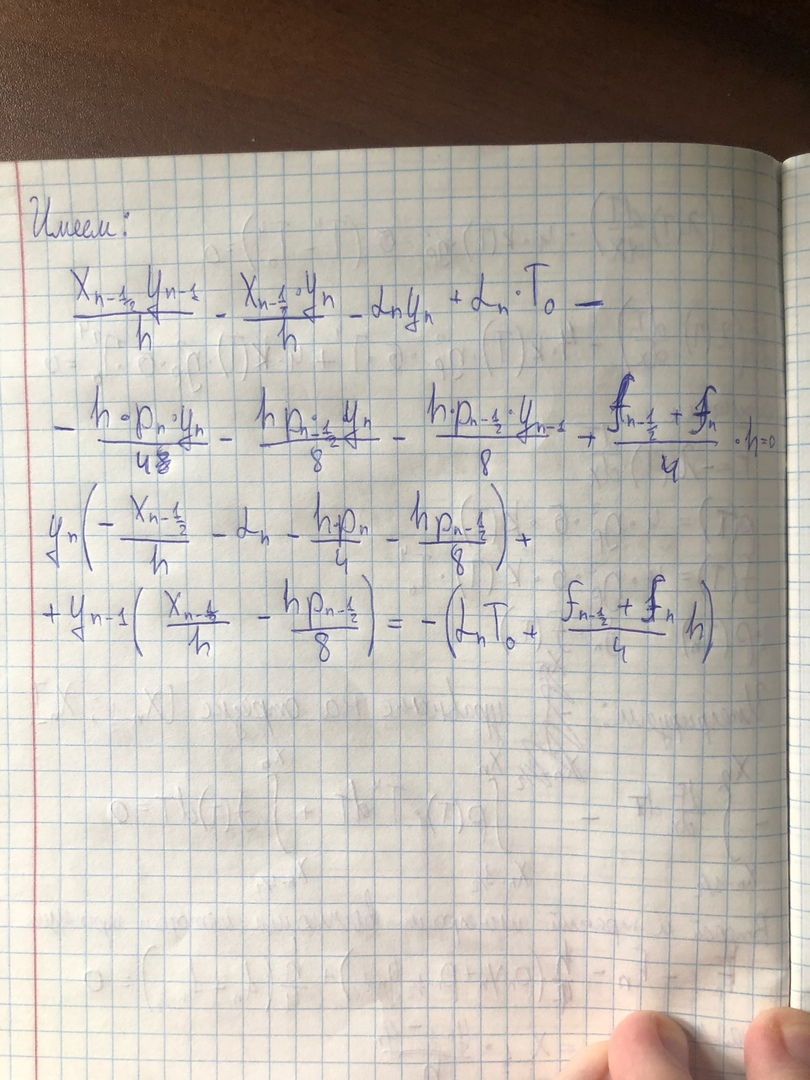 Имеем:
\frac{X_{n-\frac{1}{2}} y_{n-1}}{h} - \frac{X_{n-\frac{1}{2}} \cdot y_n}{h} - \alpha_n y_n + \alpha_n \cdot T_0 -
- \frac{h \cdot p_n \cdot y_n}{4} - \frac{h p_{n-\frac{1}{2}} y_n}{8} - \frac{h \cdot p_{n-\frac{1}{2}} \cdot y_{n-1}}{8} + \frac{f_{n-\frac{1}{2}} + f_n}{4} \cdot h = 0
y_n \left( - \frac{X_{n-\frac{1}{2}}}{h} - \alpha_n - \frac{h \cdot p_n}{4} - \frac{h p_{n-\frac{1}{2}}}{8} \right) +
+ y_{n-1} \left( \frac{X_{n-\frac{1}{2}}}{h} - \frac{h p_{n-\frac{1}{2}}}{8} \right) = - \left( \alpha_n T_0 + \frac{f_{n-\frac{1}{2}} + f_n}{4} h \right)